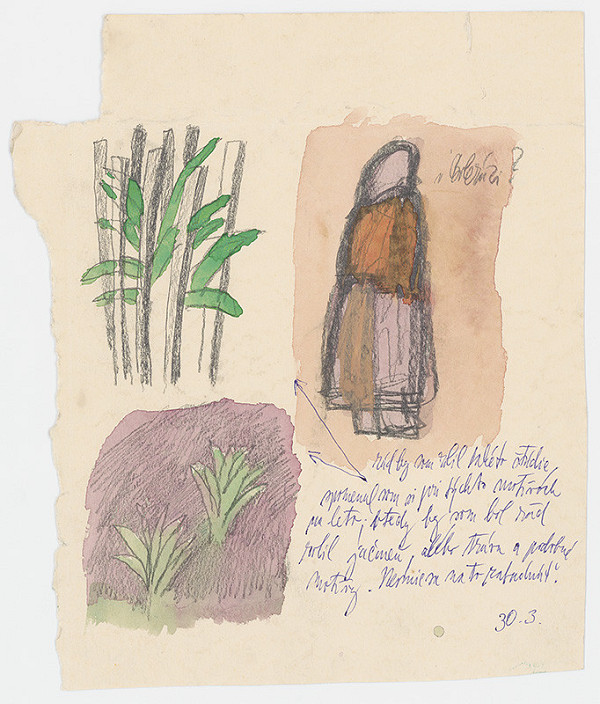 i ?
rád by som robil takéto štúdie,
spomenul som si pri týchto motívoch
na leto; vtedy by som bol rád
robil jačmeň, alebo tráva a podobné
motívy. Nesmiem na to zabudnúť!
30.3.